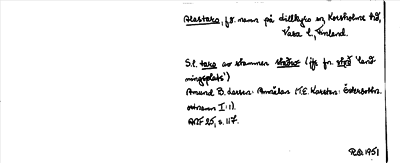 Alastaro, f.d. namn på dillkyro sn, Korsholms hd,
Vasa l., Finland.
S.l. taro av stammen (jfr fn. 'land-
ningsplats')
Amund B. Larsen: Anmälan (T.E. Karsten: Österbottn.
ortnamn I:1).
ANF 25, s. 117.
1951